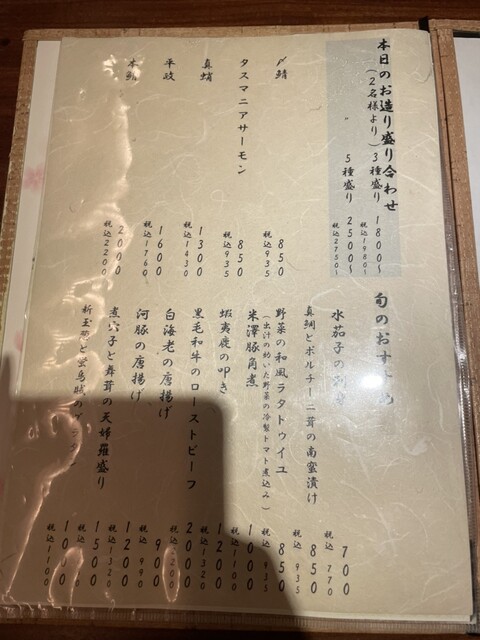 本日のお造り盛り合わせ
（2名様より）3種盛り 1800〜
税込1980〜
〃 5種盛り 2500〜
税込2750〜
〆鯖 850
税込935
タスマニアサーモン 850
税込935
真蛸 1300
税込1430
平政 1600
税込1760
本 2000
税込2200
旬のおすすめ
水茄子の 700
税込 770
真鯛とポルチーニ茸の南蛮漬け 850
税込 935
野菜の和風ラタトゥイユ 850
（出汁の効いた野菜の冷製トマト煮込み） 税込 935
米澤豚角煮 1000
税込1100
蝦夷鹿の叩き 1200
税込1320
黒毛和牛のローストビーフ 2000
税込2200
白海老の唐揚げ 900
税込 990
河豚の唐揚げ 1200
税込1320
煮穴子と舞茸の天婦羅盛り 1500
税込
新玉葱と蛍烏賊の 1000
税込1100